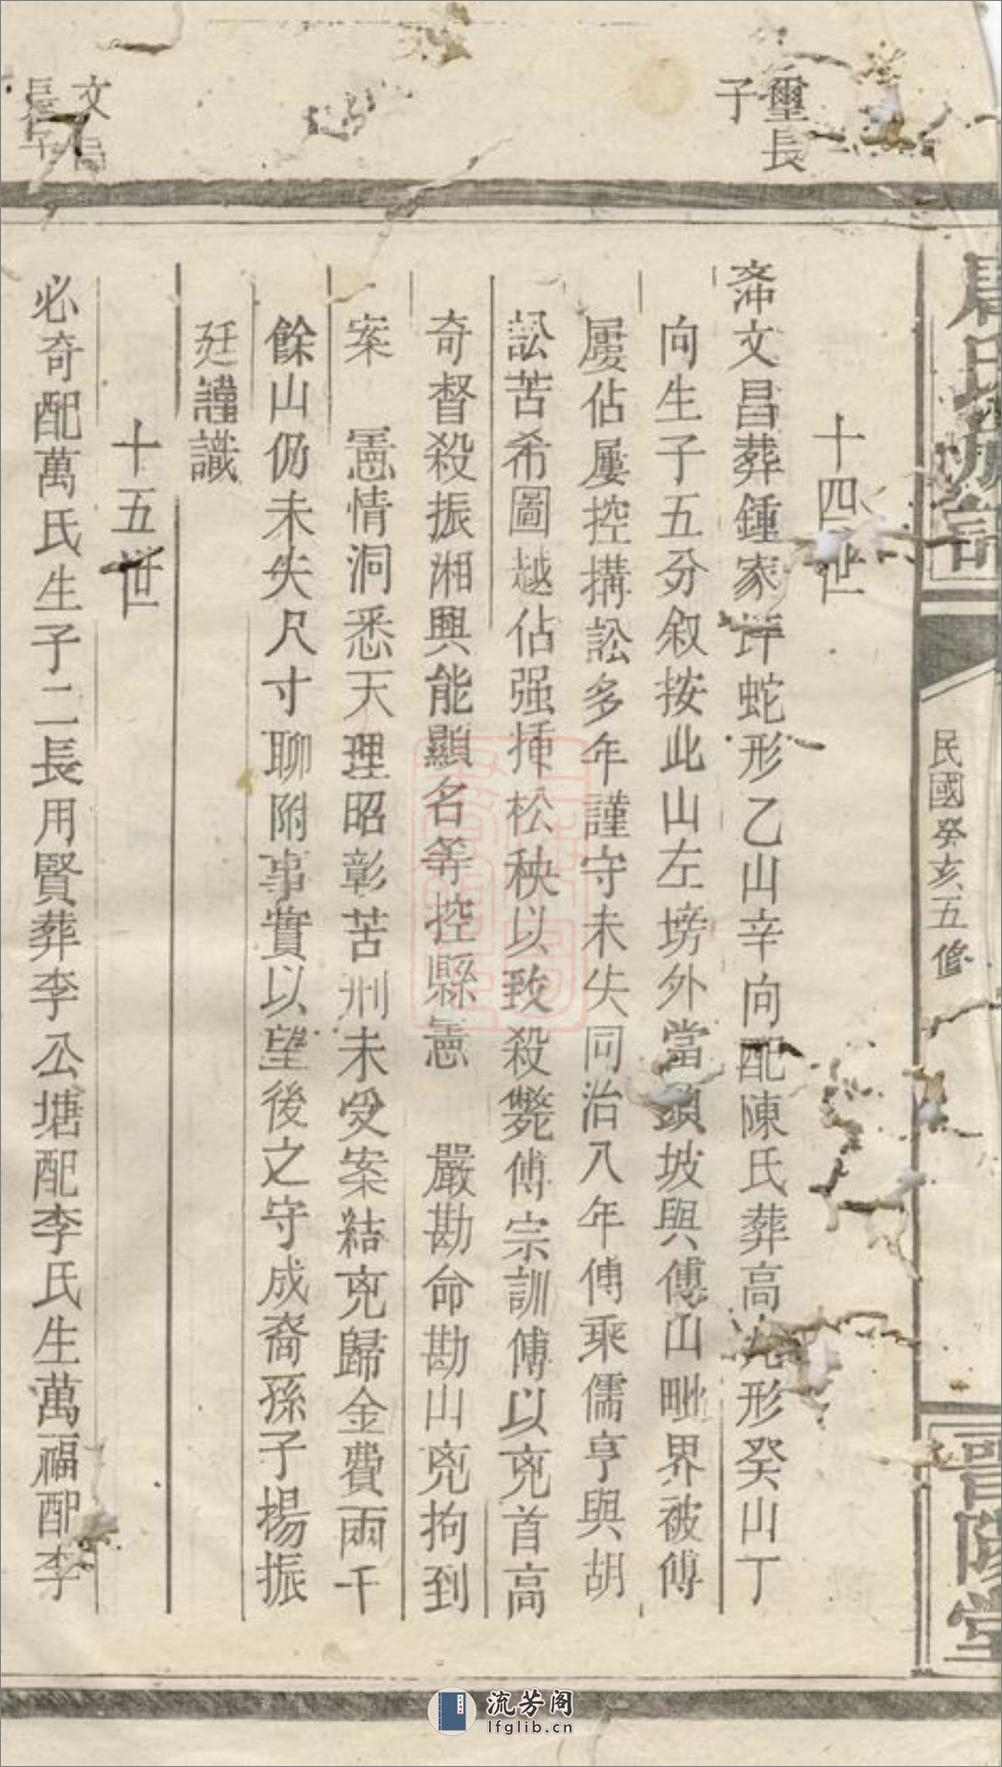 民國癸亥五修
晉陽堂
璽長子
文昌長子
十四世
斎文昌葬鍾家坪蛇形乙山辛向配陳氏葬高形癸山丁
向生子五分叙按此山左塝外當頭坡與傅山毗界被傅
屢佔屢控搆訟多年謹守未失同治八年傅乘儒亨與胡
訟苦希圖越佔强揷松秧以致殺斃傅宗訓傅以兇首高
奇督殺振湘興能顯名等控縣憲　嚴勘命勘山兇拘到
案　憲情洞悉天理昭彰苦刑未受案結兇歸金費兩千
餘山仍未失尺寸聊附事實以望後之守成裔孫子揚振
廷謹識
十五世
必奇配萬氏生子二長用賢葬李公塘配李氏生萬福配李
流芳阁
lfglib.cn